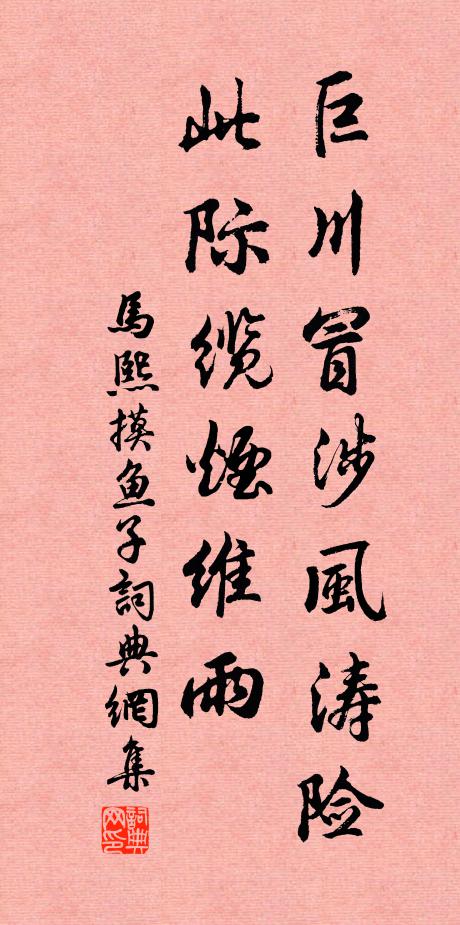 巨川冒涉風涛险
此际缆煙维雨
馬熙摸鱼子詞典網集
詞典网印